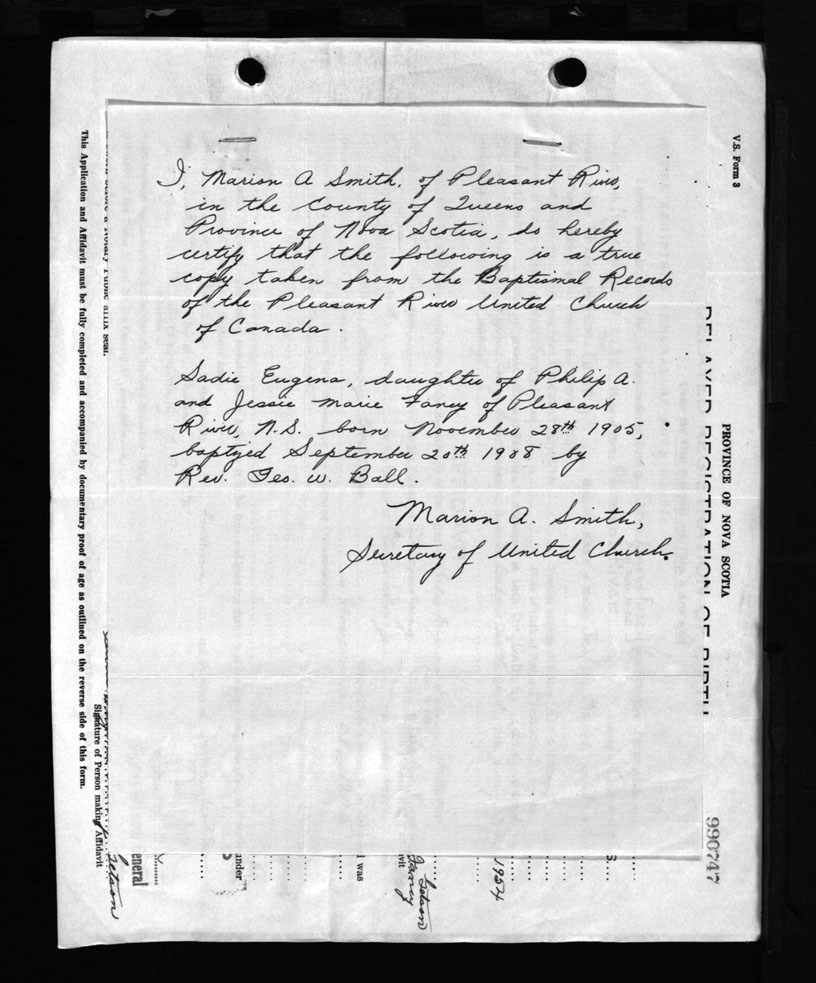 I, Marion A Smith, of Pleasant River,
in the County of Queens and
Province of Nova Scotia, do hereby
certify that the following is a true
copy taken from the Baptismal Records
of the Pleasant River United Church
of Canada.
Sadie Eugena, daughter of Philip A.
and Jessie Marie Fancy of Pleasant
River, N.S. born November 28th 1905,
baptized September 20th 1908 by
Rev. Geo. W. Ball.
Marion A. Smith,
Secretary of United Church.
V.S. Form 3
PROVINCE OF NOVA SCOTIA
DELAYED REGISTRATION OF BIRTH
990747
This Application and Affidavit must be fully completed and accompanied by documentary proof of age as outlined on the reverse side of this form.
Signature of Person making Affidavit
a Notary Public affix seal.
eneral
under
I was
1954
Fancy